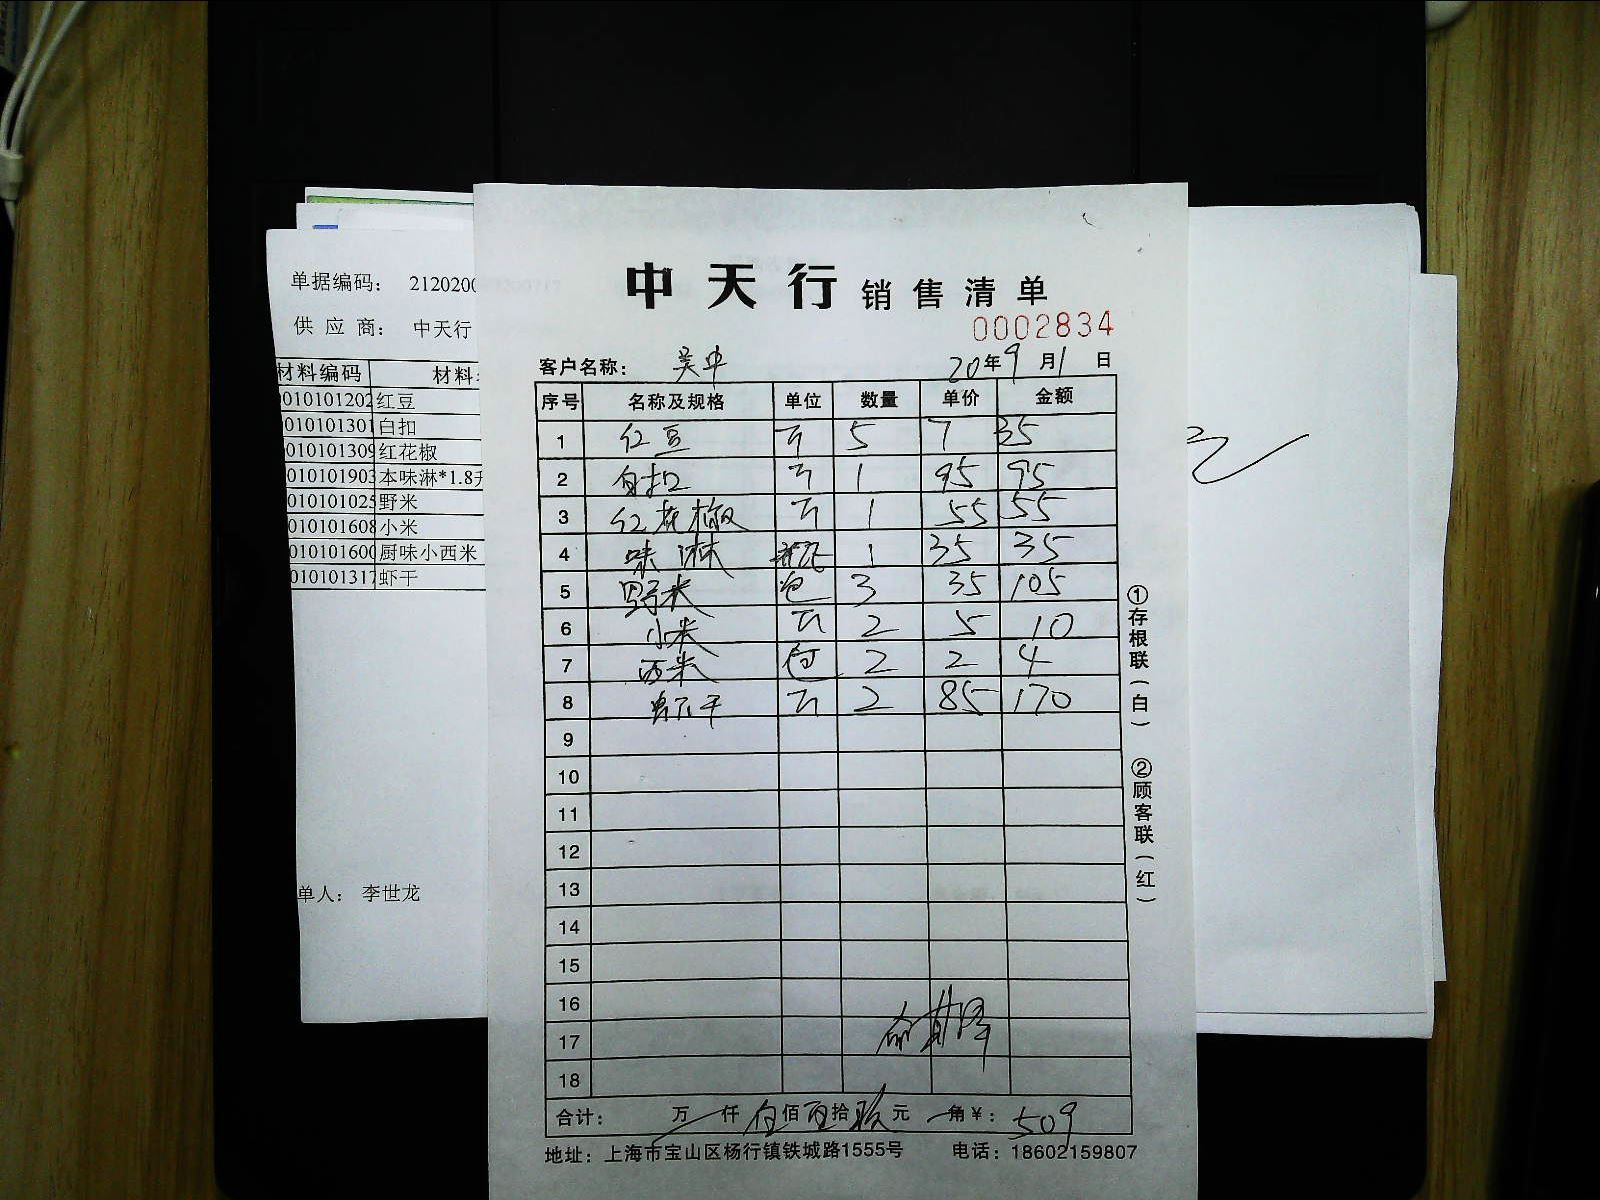 单据编码： 2120200
供 应 商： 中天行
材料编码 材料
010101202 红豆
010101301 白扣
010101309 红花椒
010101903 本味淋*1.8升
010101025 野米
010101608 小米
010101600 厨味小西米
010101317 虾干
单人： 李世龙
中天行 销售清单
0002834
客户名称： 吴中 20年9月1日
序号 名称及规格 单位 数量 单价 金额
1 红豆 斤 5 7 35
2 白扣 斤 1 95 95
3 红花椒 斤 1 55 55
4 味淋 瓶 1 35 35
5 野米 包 3 35 105
6 小米 斤 2 5 10
7 西米 包 2 2 4
8 虾干 斤 2 85 170
9
10
11
12
13
14
15
16
17
18
合计： 万 仟 伍佰 零拾 玖元 角￥： 509
地址：上海市宝山区杨行镇铁城路1555号 电话：18602159807
①存根联（白）
②顾客联（红）